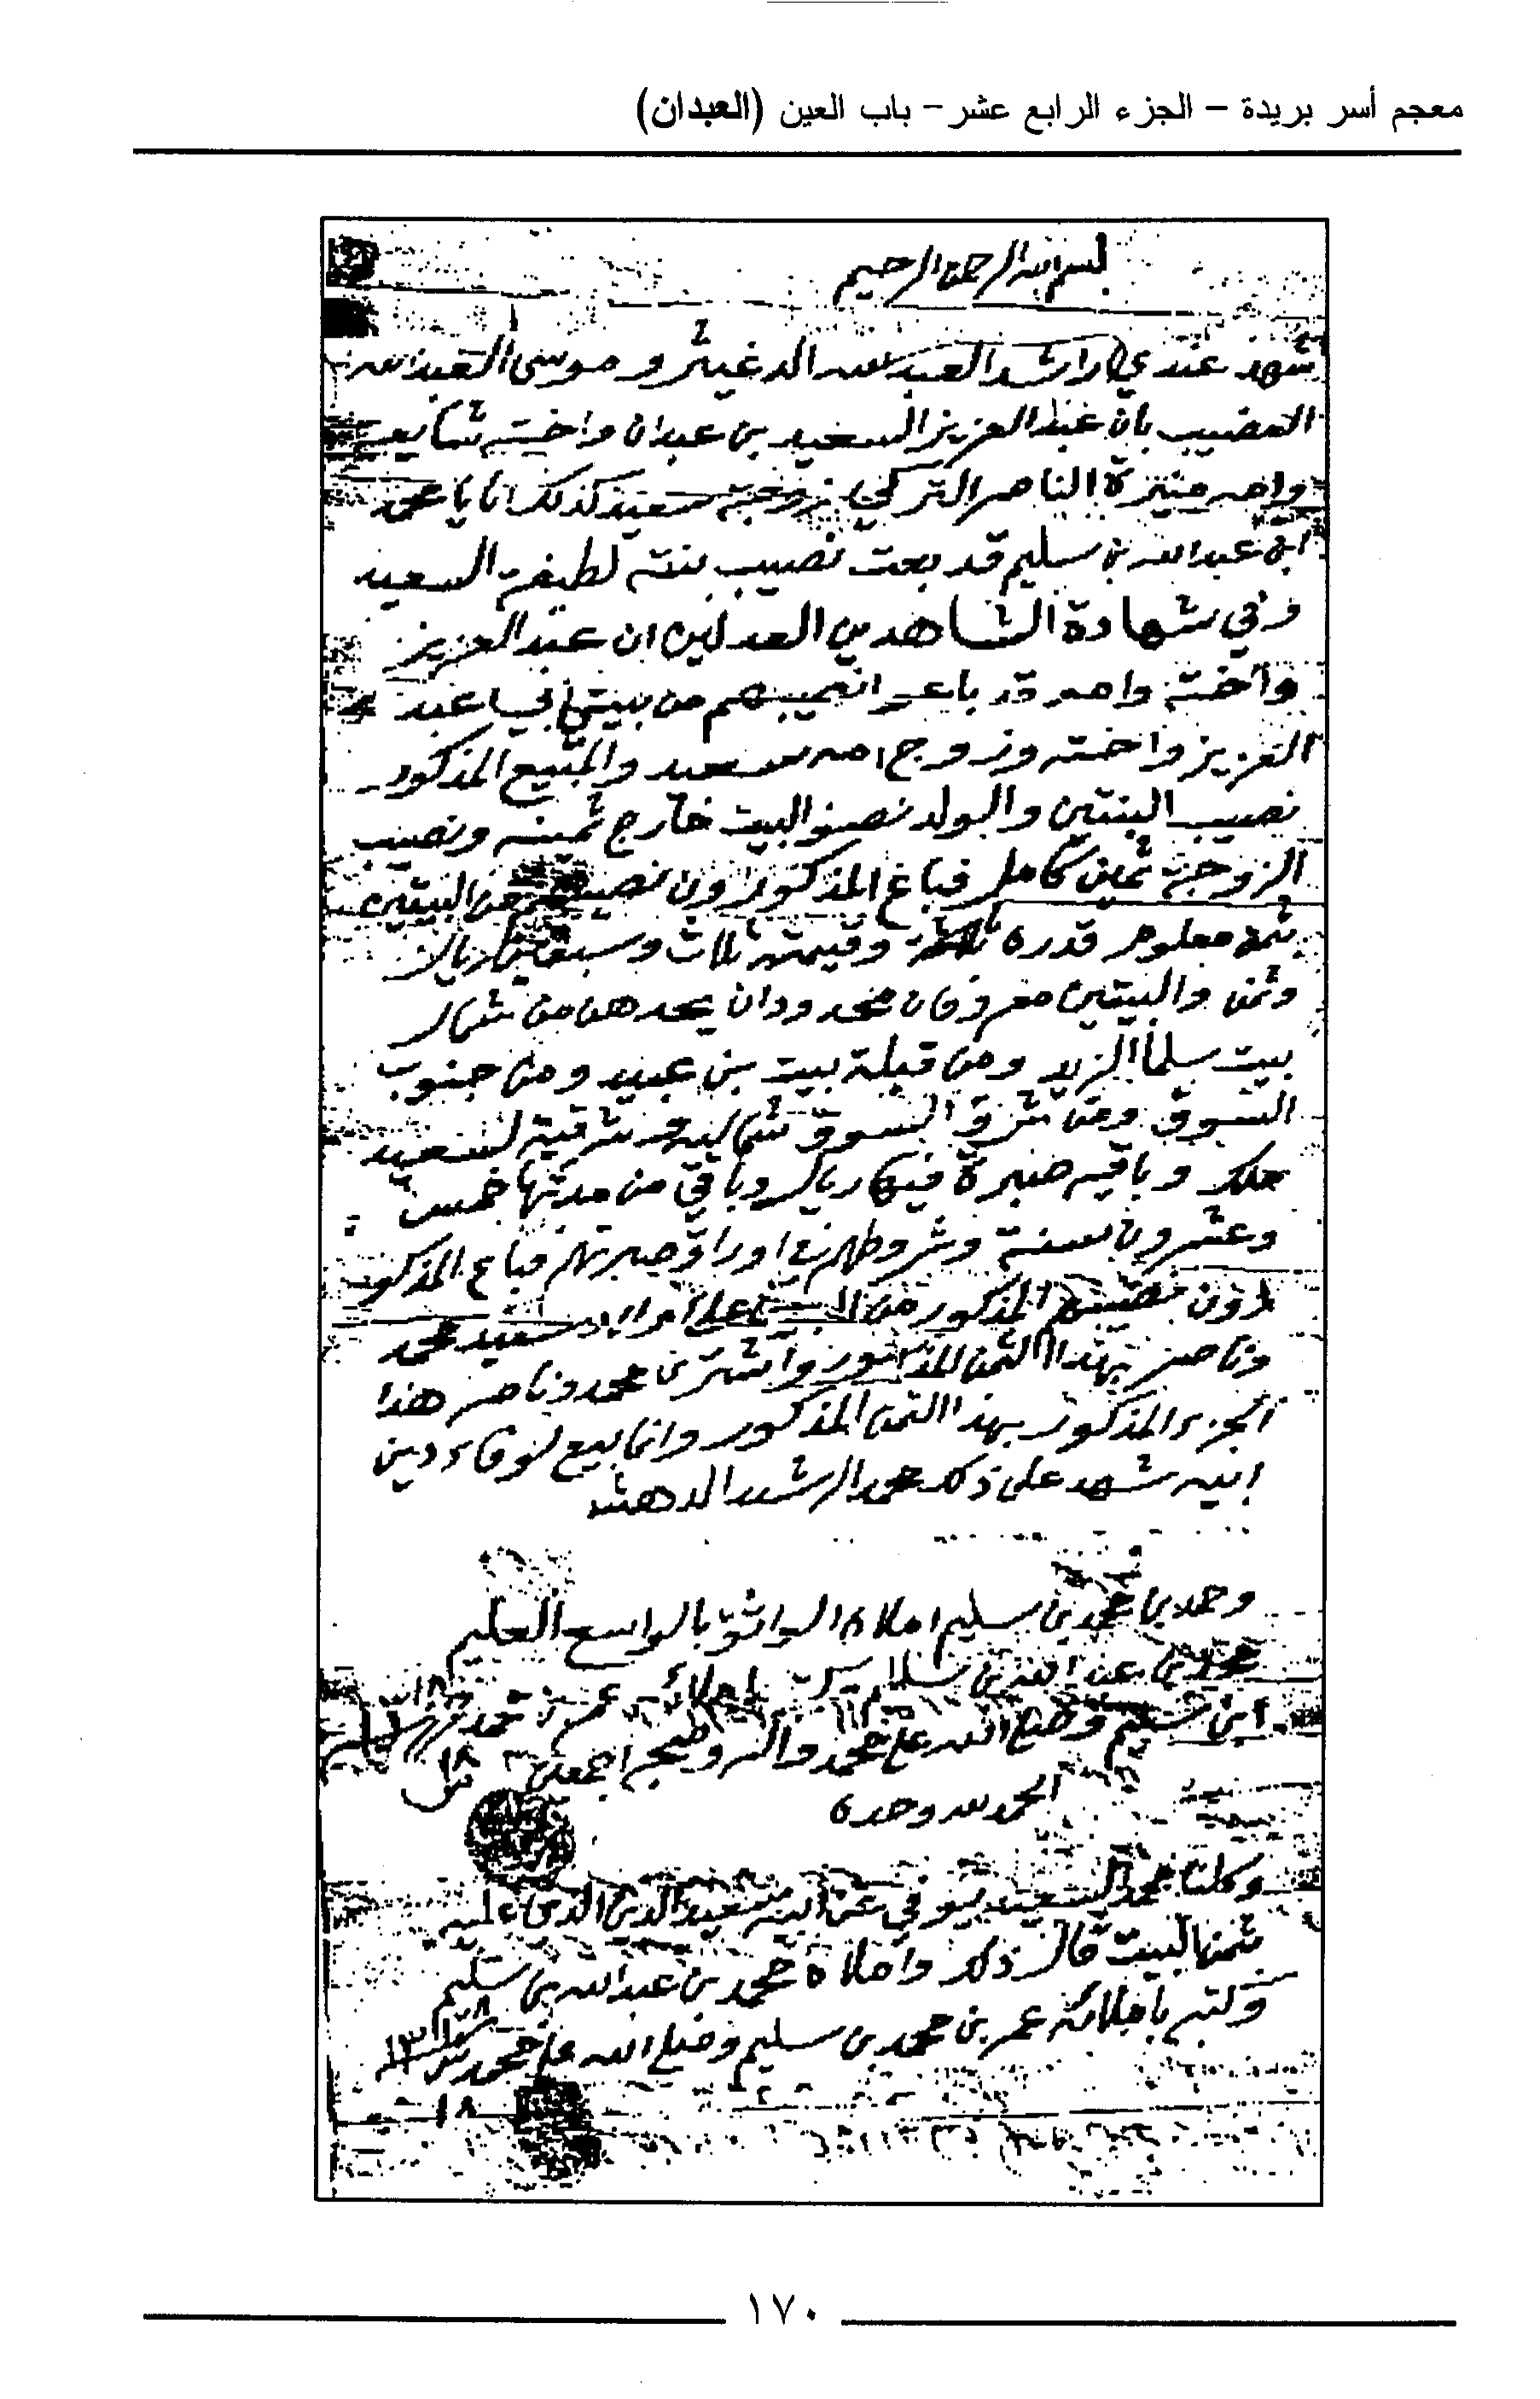 معجم أسر بريدة – الجزء الرابع عشر – باب العين (العبدان)
بسم الله الرحمن الرحيم
شهد عندي راشد العبد الله الدغيثر وموسى العبد الله
العضيب بان عبد العزيز السعيد بن عبدان واخته شايعه
وامه منيرة الناصر التركي زوجة سعيد كذلك انا يا محمد
ابن عبد الله بن سليم قد بعت نصيب بنته لطيفة السعيد
وفي شهادة الشاهدين العدلين ان عبد العزيز
واخته وامه قد باعو نصيبهم من بيتي عبد
العزيز واخته وزوج امه سعيد والمبيع المذكور
نصيب البنتين والولد نصف البيت خارج ثمينه ونصيب
الزوجة ثمين كامل فباع المذكورون نصيبهم من البيتين
بثمن معلوم قدره وقيمته ثلاث وسبعين ريال
وثمن والبيتين معروفات محدودات يحدهن من شمال
بيت سلما الزيد ومن قبلة بيت بن عبيد ومن جنوب
السوق ومن شرق السوق شماليه شرقية لسعيد
ملك وباقيه صبرة فيها ريال وباقي من مدتها خمس
وعشرون سنة وشروطهن اوراق صبرتهن فباع المذكو
رون نصيبهم المذكور من البيتين على اولاد سعيد محمد
وناصر بهذا الثمن المذكور واشترى محمد وناصر هذا
الجزء المذكور بهذا الثمن المذكور وانما بيع لوفاء دين
ابيه شهد على ذلك محمد الرشيد الدهش
وحمد بن محمد بن سليم املاه الواثق بالواسع العليم
محمد بن عبد الله بن سليم باملائه عمر بن محمد
ابن سليم وصلى الله على محمد وآله وصحبه اجمعين
١٨
الحمد لله وحده
وكلنا محمد السعيد يوفي عن ابيه سعيد الدين الذي عليه
ثمن البيت قال ذلك واملاه محمد بن عبد الله بن سليم
وكتبه باملائه عمر بن محمد بن سليم وصلى الله على محمد
١٨
١٧٠